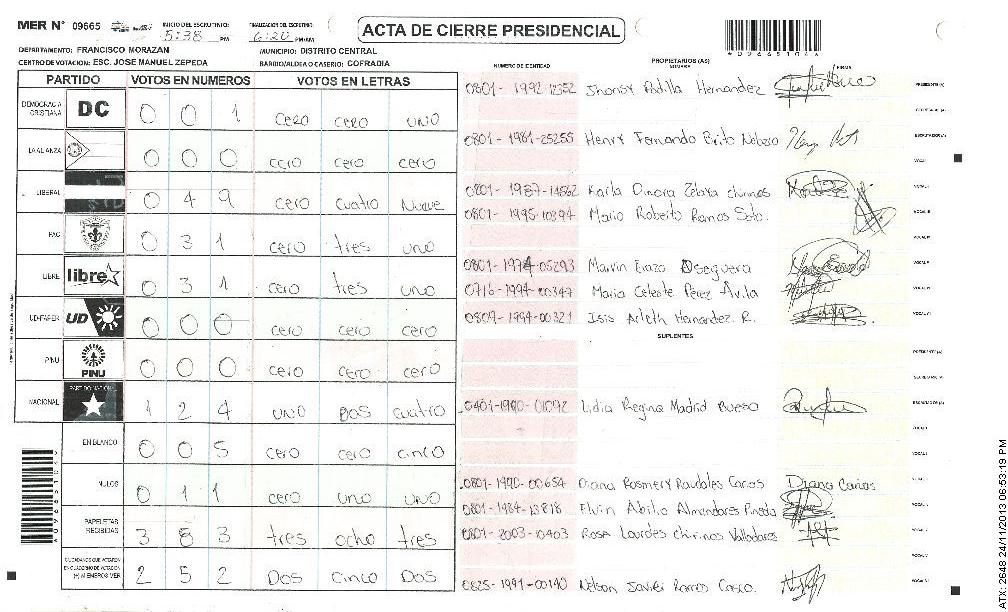 MER N° 09665
INICIO DEL ESCRUTINIO: 5:38 PM
FINALIZACION DEL ESCRUTINIO: 6:20 PM/AM
ACTA DE CIERRE PRESIDENCIAL
DEPARTAMENTO: FRANCISCO MORAZAN
MUNICIPIO: DISTRITO CENTRAL
CENTRO DE VOTACION: ESC. JOSE MANUEL ZEPEDA
BARRIO/ALDEA O CASERIO: COFRADIA
NUMERO DE IDENTIDAD
PROPIETARIOS (AS)
NOMBRE
FIRMA
PARTIDO VOTOS EN NUMEROS VOTOS EN LETRAS
DEMOCRACIA CRISTIANA DC 0 0 1 cero cero uno
LA ALIANZA 0 0 0 cero cero cero
LIBERAL 0 4 9 cero cuatro Nueve
PAC 0 3 1 cero tres uno
LIBRE libre 0 3 1 cero tres uno
UD-FAPER UD 0 0 0 cero cero cero
PINU PINU 0 0 0 cero cero cero
NACIONAL 1 2 4 uno Dos cuatro
EN BLANCO 0 0 5 cero cero cinco
NULOS 0 1 1 cero uno uno
PAPELETAS RECIBIDAS 3 8 3 tres ocho tres
CIUDADANOS QUE VOTARON EN CUADERNO DE VOTACION (+) MIEMBROS MER 2 5 2 Dos cinco Dos
0801-1992-12352 Jhonsy Padilla Hernandez
0801-1981-25255 Henry Fernando Brito
0801-1987-14862 Karla Dinora Zelaya chirinos
0801-1995-10394 Mario Roberto Ramos Soto.
0801-1974-05293 Marvin Erazo Oseguera
0716-1994-00347 Maria Celeste Pérez Avila
0807-1994-00321 Isis Arleth Hernandez R.
SUPLENTES
0401-1990-01092 Lidia Regina Madrid Bueso
0801-1990-00654 Diana Rosmery Raudales Carias Diana Carias
Elvin Abilio Almendares Pineda
0801-2003-10403 Rosa Lourdes chirinos Valladares
0825-1991-00190 Nelson Javier Ramos Casco.
ATX-2648 24/11/2013 06:53:19 PM